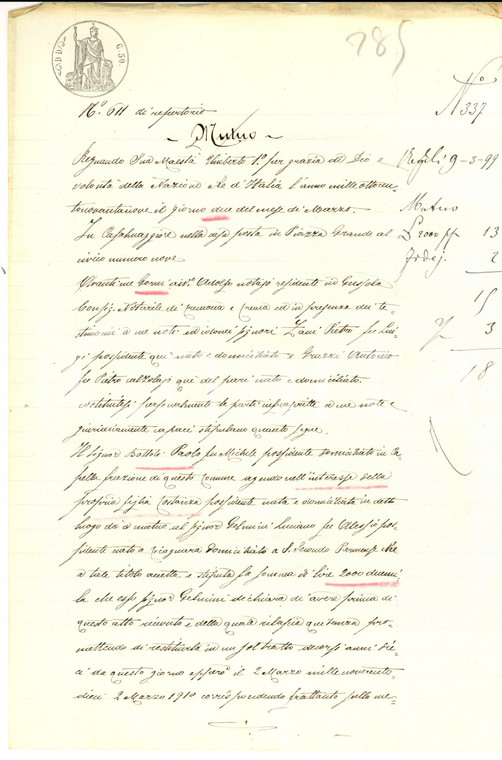 285
C. 50.
N.º 611 di repertorio
Nº 337
Mutuo
Regnando Sua Maestà Umberto 1.º per grazia di Dio e
9-3-99
volontà della Nazione Re d'Italia l'anno mille ottocen
tonovantanove il giorno due del mese di Marzo.
Mutuo
In Casalmaggiore nella casa posta in Piazza Grande al
£ 2000 13
civico numero nove
2
Avanti me Gorni Adolfo notajo residente in Gussola
15
Consig. Notarile di Cremona e Crema ed in presenza dei te-
3
stimoni a me noti ed idonei signori Zani Pietro fu Lui-
18
gi possidente qui nato e domiciliato e Antonio
fu Pietro calzolajo qui del pari nato e domiciliato.
costituitesi personalmente le parti infrascritte a me note e
giuridicamente capaci stipulano quanto segue.
Il Signor Paolo fu Michele possidente domiciliato in Ca-
pella frazione di questo Comune agendo nell'interesse della
propria figlia Costanza possidente nata e domiciliata in detto
luogo dà a mutuo al signor Gelmini Luciano fu Alessio pos-
sidente nato a Cicognara domiciliato a S. Secondo Parmense che
a tale titolo accetta e stipula la somma di lire 2000 duemi-
la che esso signor Gelmini dichiara di avere prima di
questo atto ricevuto e della quale rilascia quietanza pro-
mettendo di restituirla in un sol tratto decorsi anni die-
ci da questo giorno il 2 Marzo mille novecento
dieci 2 Marzo 1910 corrispondendo frattanto sulla me-